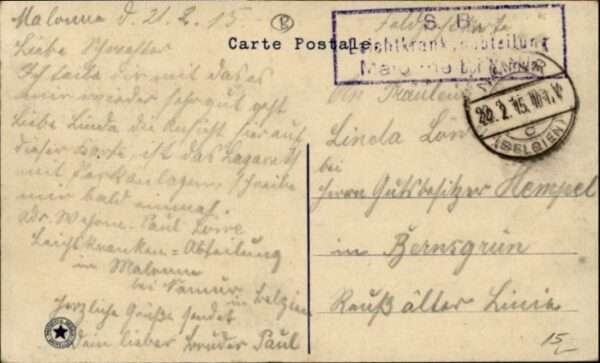 Malonne d. 21.2.15
Liebe Schwester
Ich teile Dir mit das es
mir wieder sehr gut geht
Liebe Linda die Ansicht hier auf
dieser Karte, ist das Lazarett
mit Parkanlagen, schreibe
mir bald einmal.
Adr. Wehrm. Paul Löwe
Leichtkranken=Abteilung
in Malonne
bei Namur in Belgien
Herzliche Grüße sendet
Dein lieber Bruder Paul
B
Carte Postale
Feldpostkarte
S. B.
Leichtkrankenabteilung
Malonne bei Namur
NAMUR
20.2.15
C
(BELGIEN)
An Fräulein
Linda Löwe
bei
Herrn Gutsbesitzer Hempel
in Bernsgrün
Reuß älter Linie
15